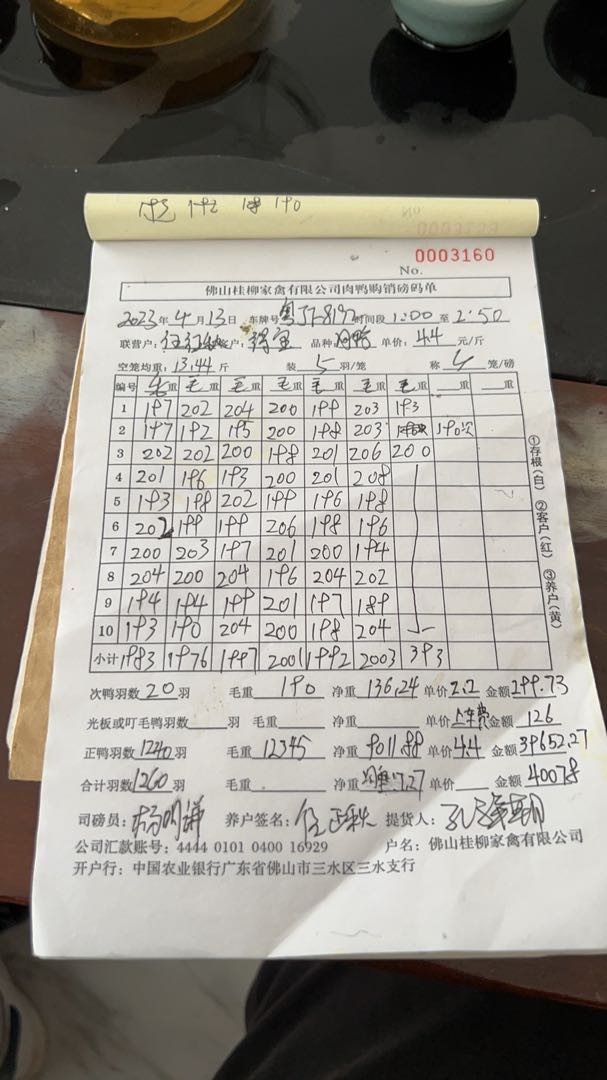 193 192 190
0003160
No.
佛山桂柳家禽有限公司肉鸭购销磅码单
2023年4月13日 车牌号 粤 时间段 1:00 至 2:50
联营户: 客户: 品种 肉鸭 单价: 4.4 元/斤
空笼均重: 13.44 斤 装 5 羽/笼 称 4 笼/磅
编号 毛重 毛重 毛重 毛重 毛重 毛重 毛重 重 重
1 197 202 204 200 199 203 193
2 197 192 195 200 198 203 190次
3 202 202 200 198 201 206 200
4 201 196 193 200 201 208
5 193 198 202 199 196 198
6 202 199 199 206 198 196
7 200 203 197 201 200 194
8 204 200 204 196 204 202
9 194 194 199 201 197 189
10 193 190 204 200 198 204
小计 1983 1976 1997 2001 1992 2003 393
①存根(白) ②客户(红) ③养户(黄)
次鸭羽数 20 羽 毛重 190 净重 136.24 单价 2.2 金额 299.73
光板或叮毛鸭羽数 羽 毛重 净重 单价 上车费 金额 126
正鸭羽数 1240 羽 毛重 12345 净重 9011.88 单价 4.4 金额 39652.27
合计羽数 1260 羽 毛重 净重 均重7.27 单价 金额 40078
司磅员: 杨明谦 养户签名: 提货人:
公司汇款账号: 4444 0101 0400 16929 户名: 佛山桂柳家禽有限公司
开户行: 中国农业银行广东省佛山市三水区三水支行